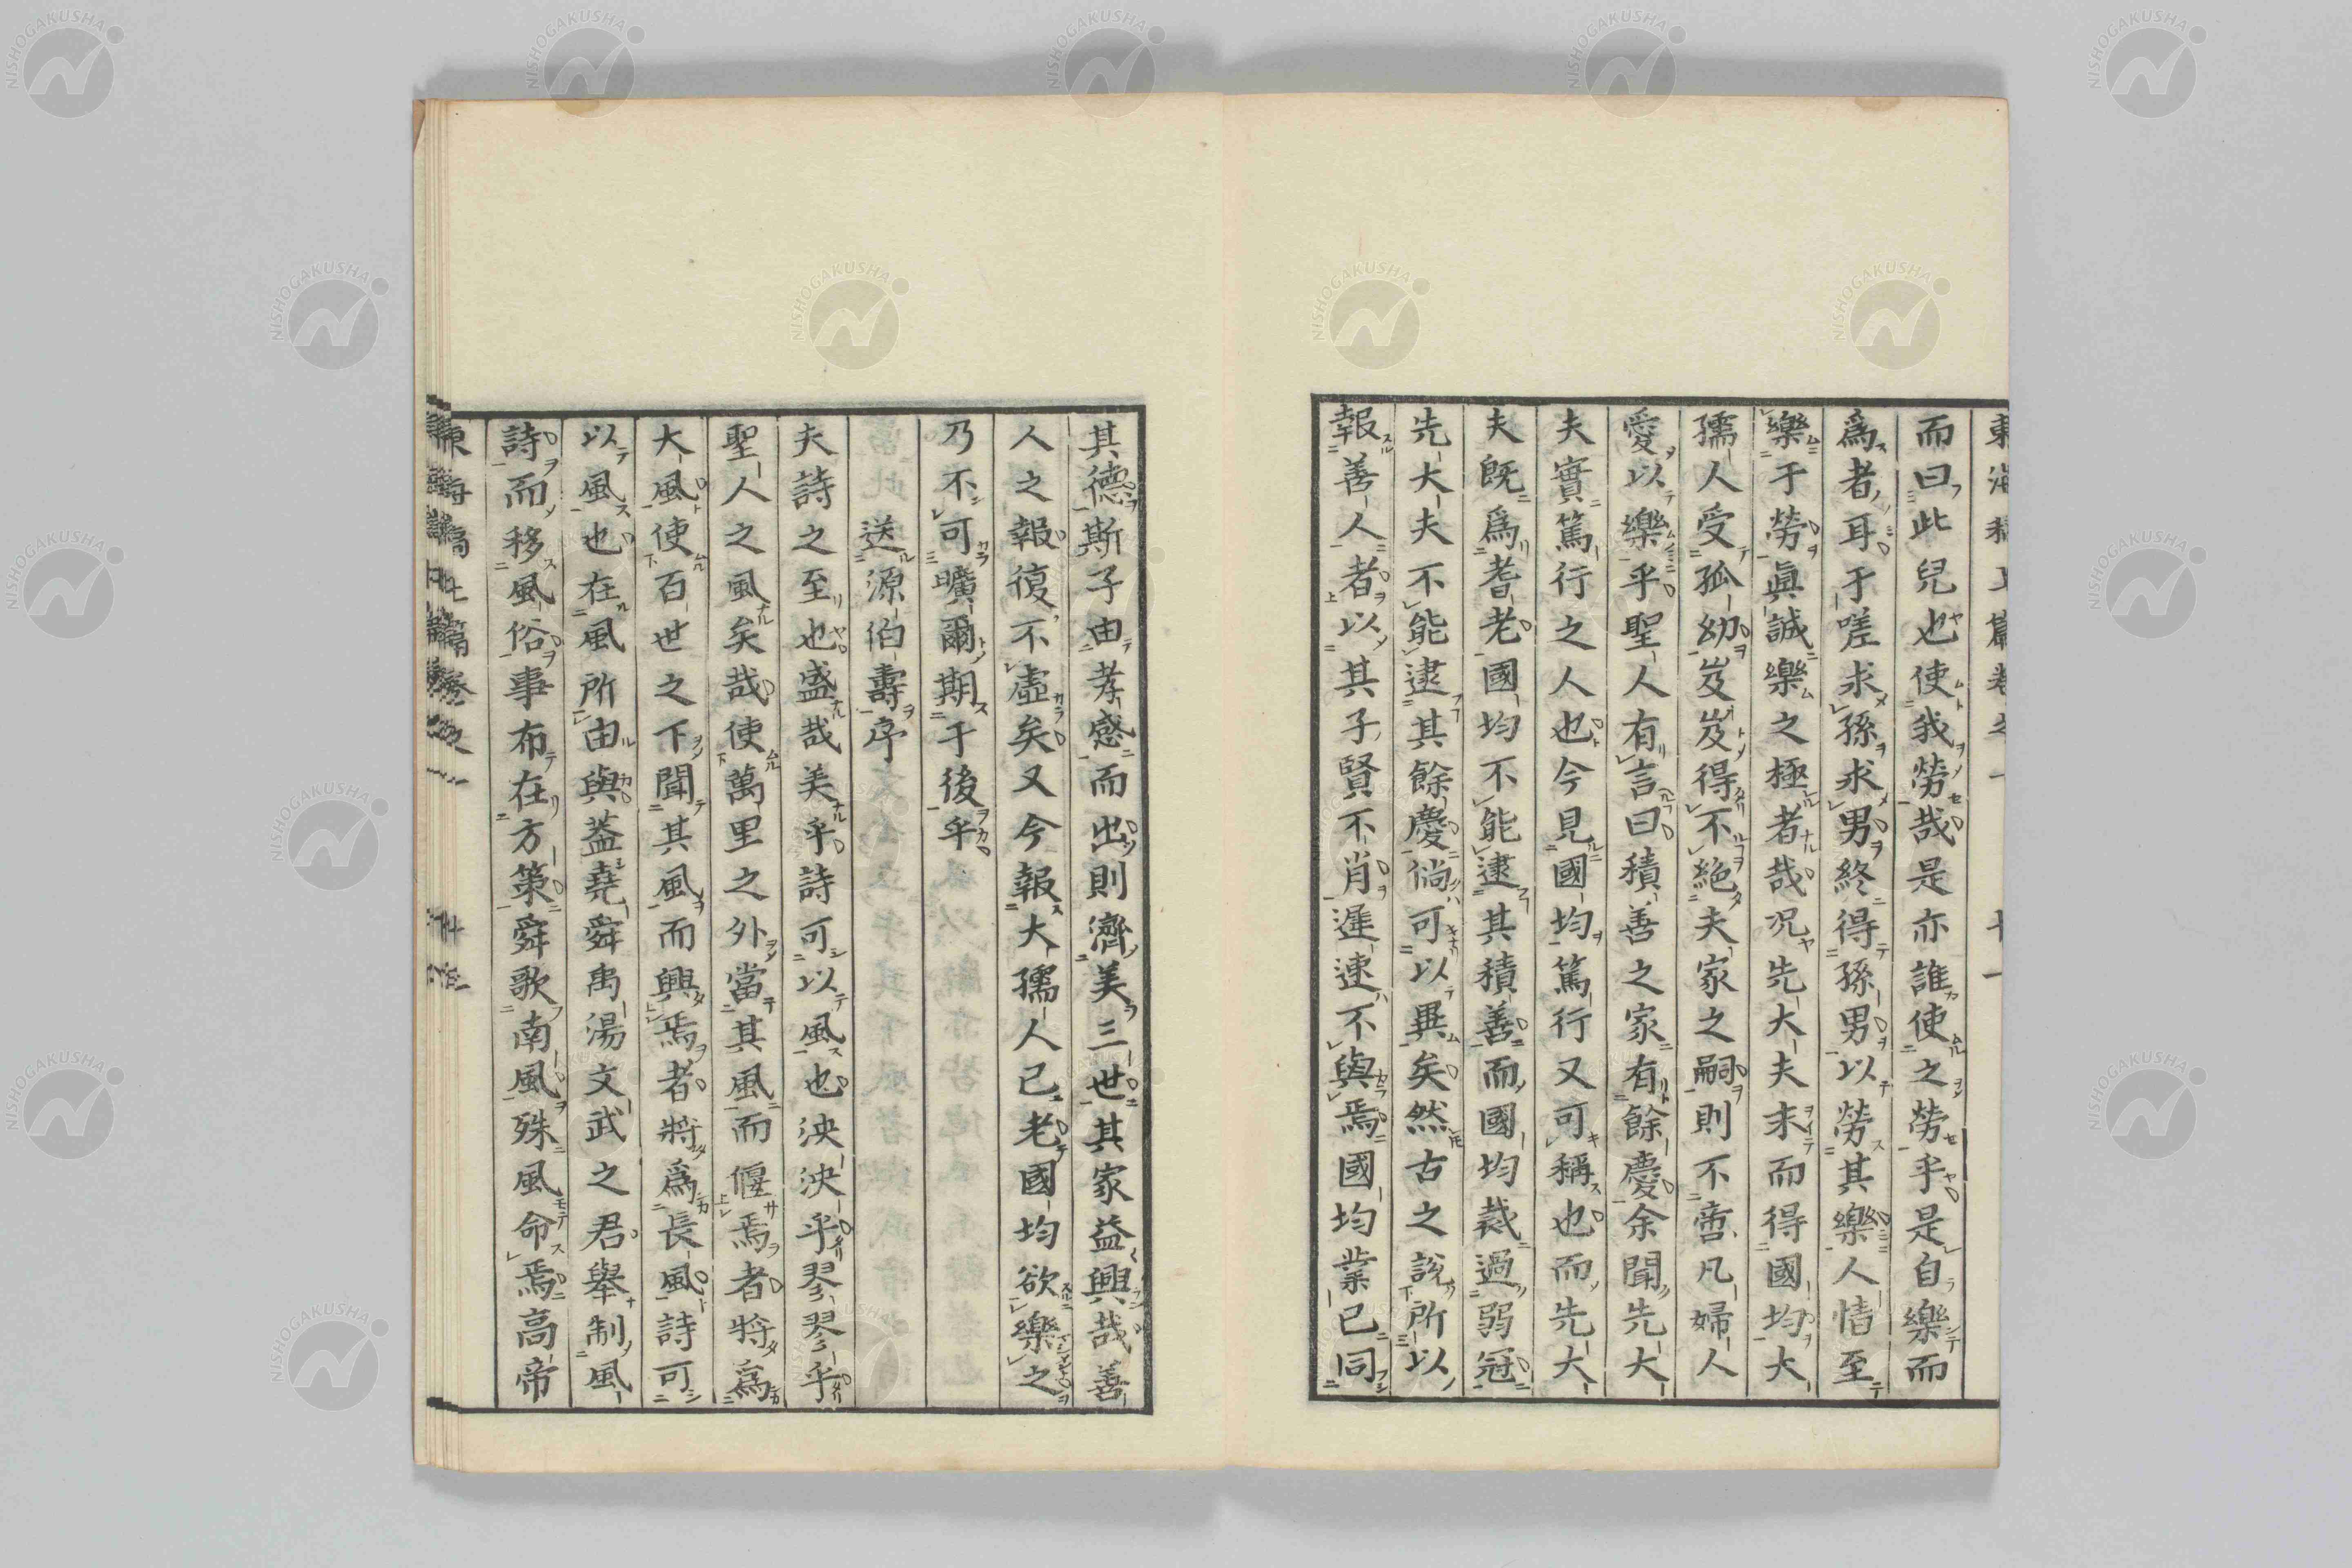 而曰此兒也使我勞哉是亦誰使之勞乎是自樂而
爲者耳于嗟求孫求男終得孫男以勞其樂人情至
樂于勞眞誠樂之極者哉况先大夫末而得國均大
孺人受孤幼岌岌得不絕夫家之嗣則不啻凡婦人
愛以樂乎聖人有言曰積善之家有餘慶余聞先大
夫實篤行之人也今見國均篤行又可稱也而先大
夫既爲耆老國均不能逮其積善而國均裁過弱冠
先大夫不能逮其餘慶倘可以畢矣然古之說所以
報善人者以其子賢不肖遲速不與焉國均業已同
其德斯子由孝感而出則濟美三世其家益興哉善
人之報復不虛矣又今報大孺人已老國均欲樂之
乃不可曠爾期于後乎
送源伯壽序
夫詩之至也盛哉美乎詩可以風也泱泱乎翏翏乎
聖人之風矣哉使萬里之外當其風而偃焉者將爲
大風使百世之下聞其風而興焉者將爲長風詩可
以風也在風所由與蓋堯舜禹湯文武之君舉制風
詩而移風俗事布在方策舜歌南風殊風命焉高帝
NISHOGAKUSHA